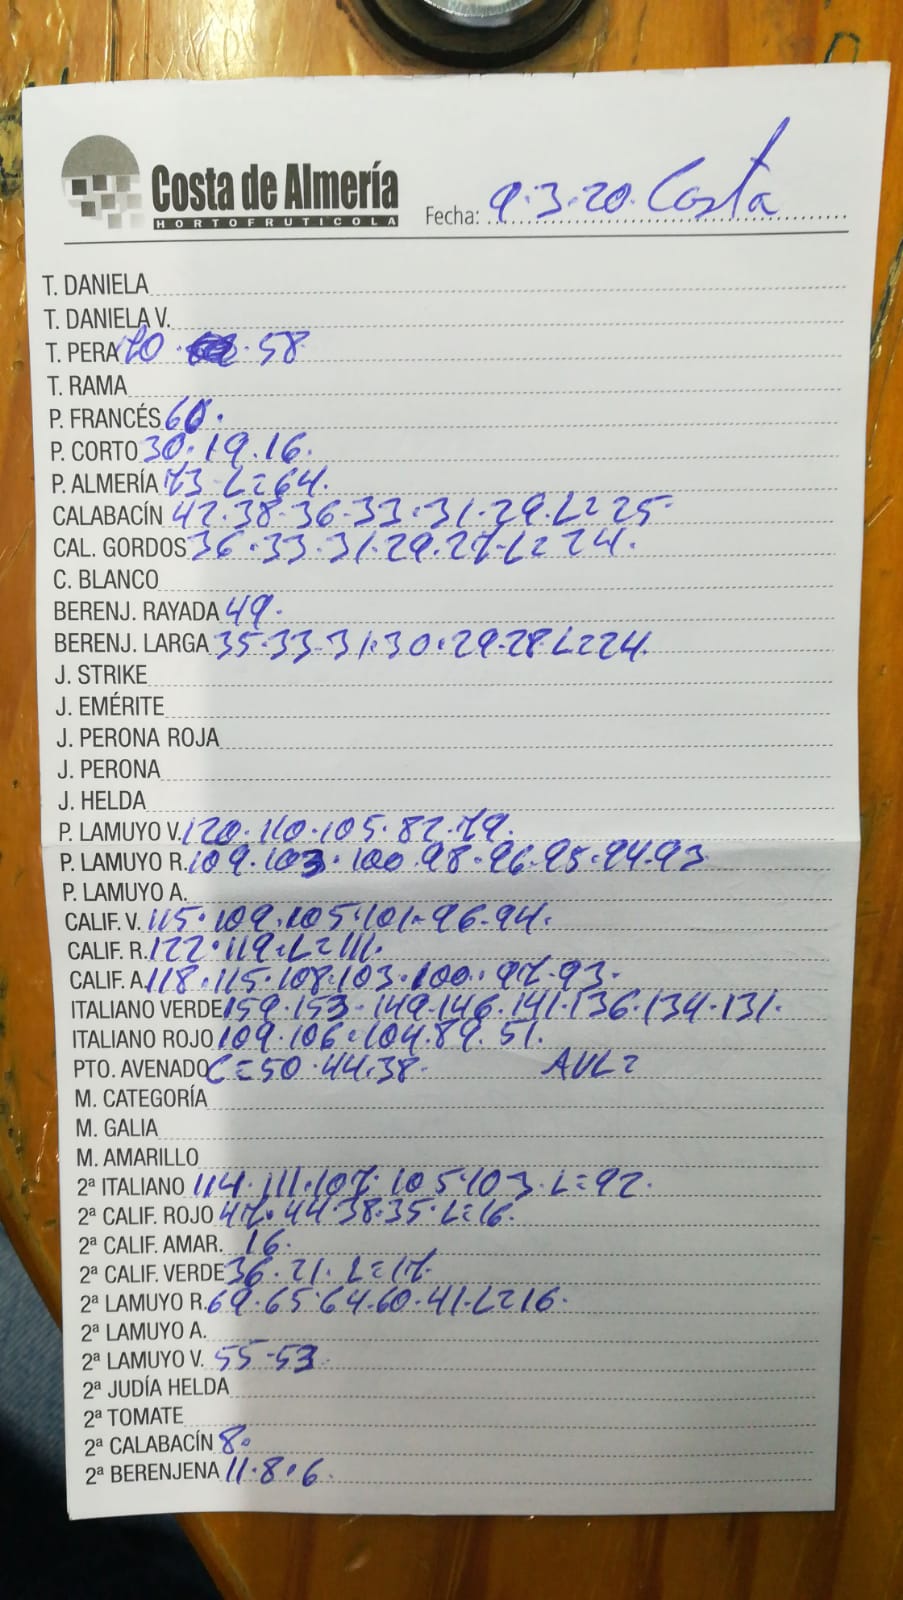 Costa de Almería
HORTOFRUTICOLA
Fecha: 9.3.20. Costa
T. DANIELA
T. DANIELA V.
T. PERA 70 · 58
T. RAMA
P. FRANCÉS 60.
P. CORTO 30.19.16.
P. ALMERÍA 73-L=64.
CALABACÍN 42.38.36.33.31.29.L=25.
CAL. GORDOS 36.33.31.29.27.L=24.
C. BLANCO
BERENJ. RAYADA 49.
BERENJ. LARGA 35.33.31.30.29.28 L=24.
J. STRIKE
J. EMÉRITE
J. PERONA ROJA
J. PERONA
J. HELDA
P. LAMUYO V. 120.110.105.82.79.
P. LAMUYO R. 109.103.100.98.96.95.94.93
P. LAMUYO A.
CALIF. V. 115.109.105.101.96.94.
CALIF. R. 122.119.L=111.
CALIF. A. 118.115.108.103.100.97.93.
ITALIANO VERDE 159.153.149.146.141.136.134.131.
ITALIANO ROJO 109.106.104.89.51.
PTO. AVENADO C=50.44.38. AVL=
M. CATEGORÍA
M. GALIA
M. AMARILLO
2ª ITALIANO 114.111.107.105.103.L=92.
2ª CALIF. ROJO 47.44.38.35.L=16.
2ª CALIF. AMAR. 16.
2ª CALIF. VERDE 36.21.L=17.
2ª LAMUYO R. 69.65.64.60.41.L=16.
2ª LAMUYO A.
2ª LAMUYO V. 55-53.
2ª JUDÍA HELDA
2ª TOMATE
2ª CALABACÍN 8.
2ª BERENJENA 11.8.6.